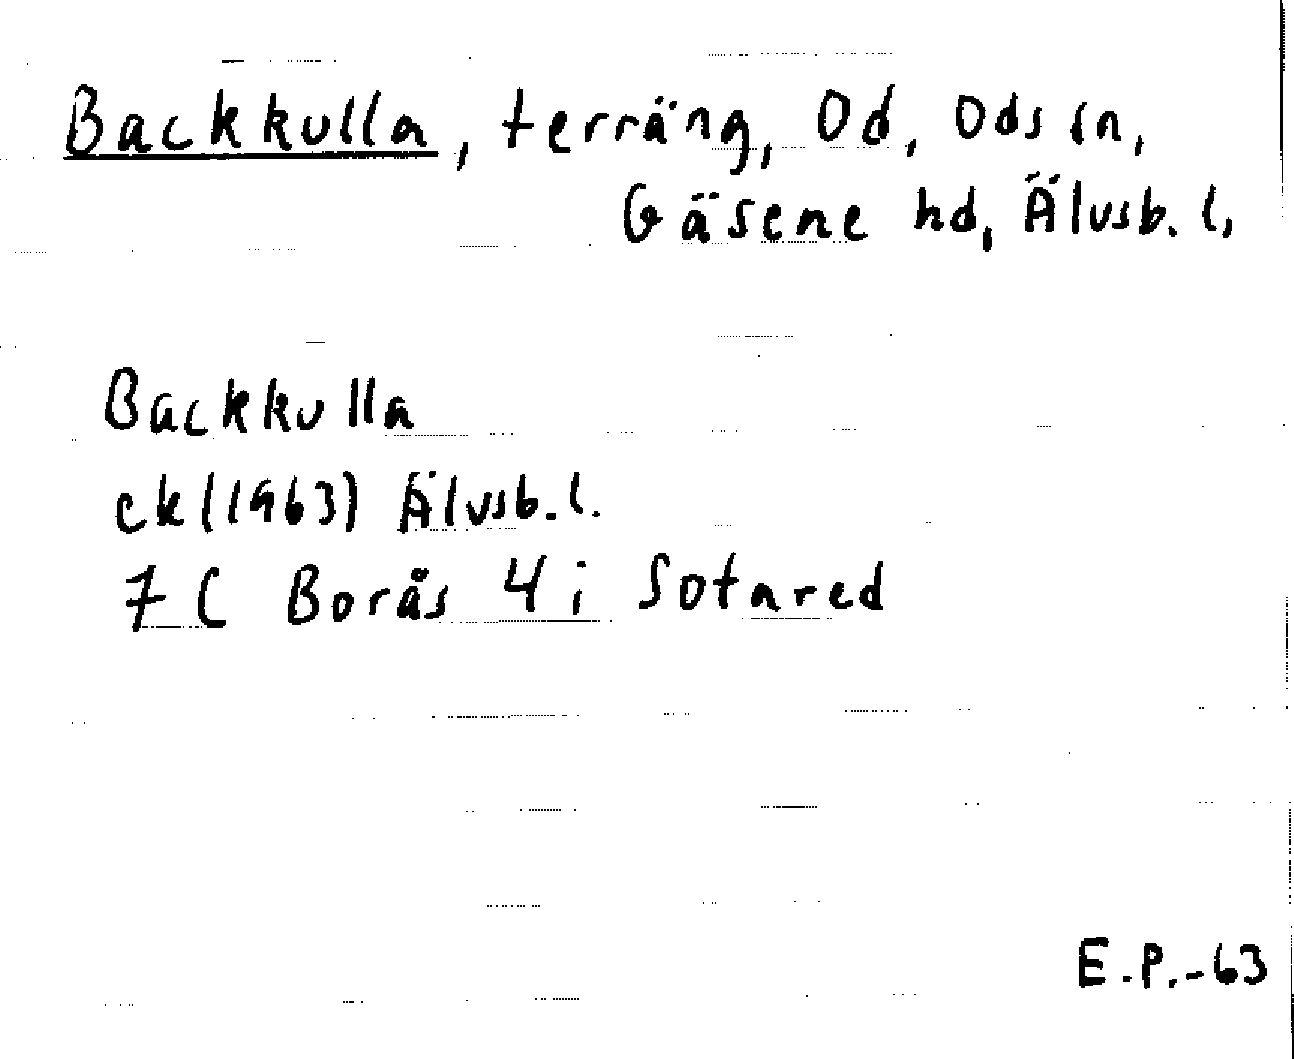 Backkulla, terräng, Od, Ods sn,
Gäsene hd, Älvsb. l,
Backkulla
ek (1963) Älvsb. l.
7 C Borås 4 i Sotared
E.P.-63